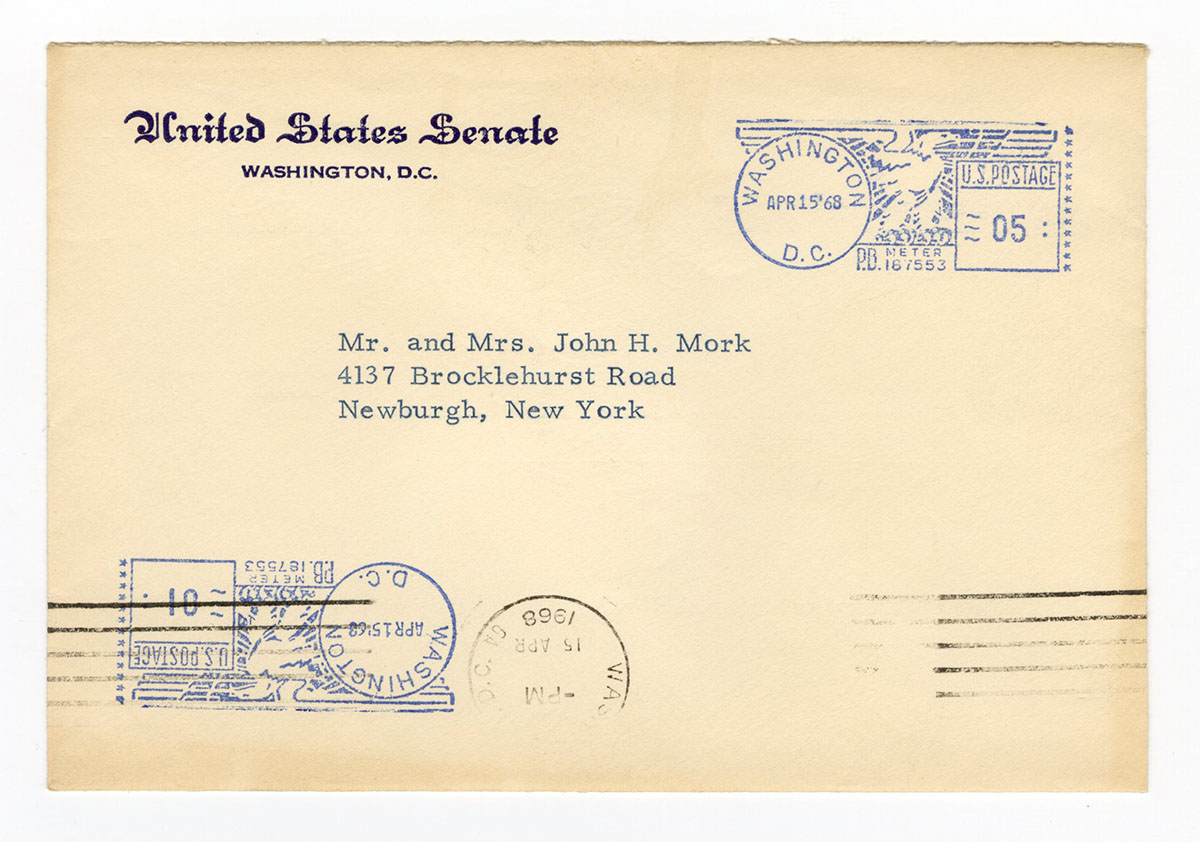 United States Senate
WASHINGTON, D.C.
WASHINGTON
APR 15'68
D.C.
P.B. METER
187553
U.S. POSTAGE
05
Mr. and Mrs. John H. Mork
4137 Brocklehurst Road
Newburgh, New York
WASHINGTON
APR 15'68
D.C.
P.B. METER
187553
U.S. POSTAGE
01
D.C.
-PM
15 APR
1968